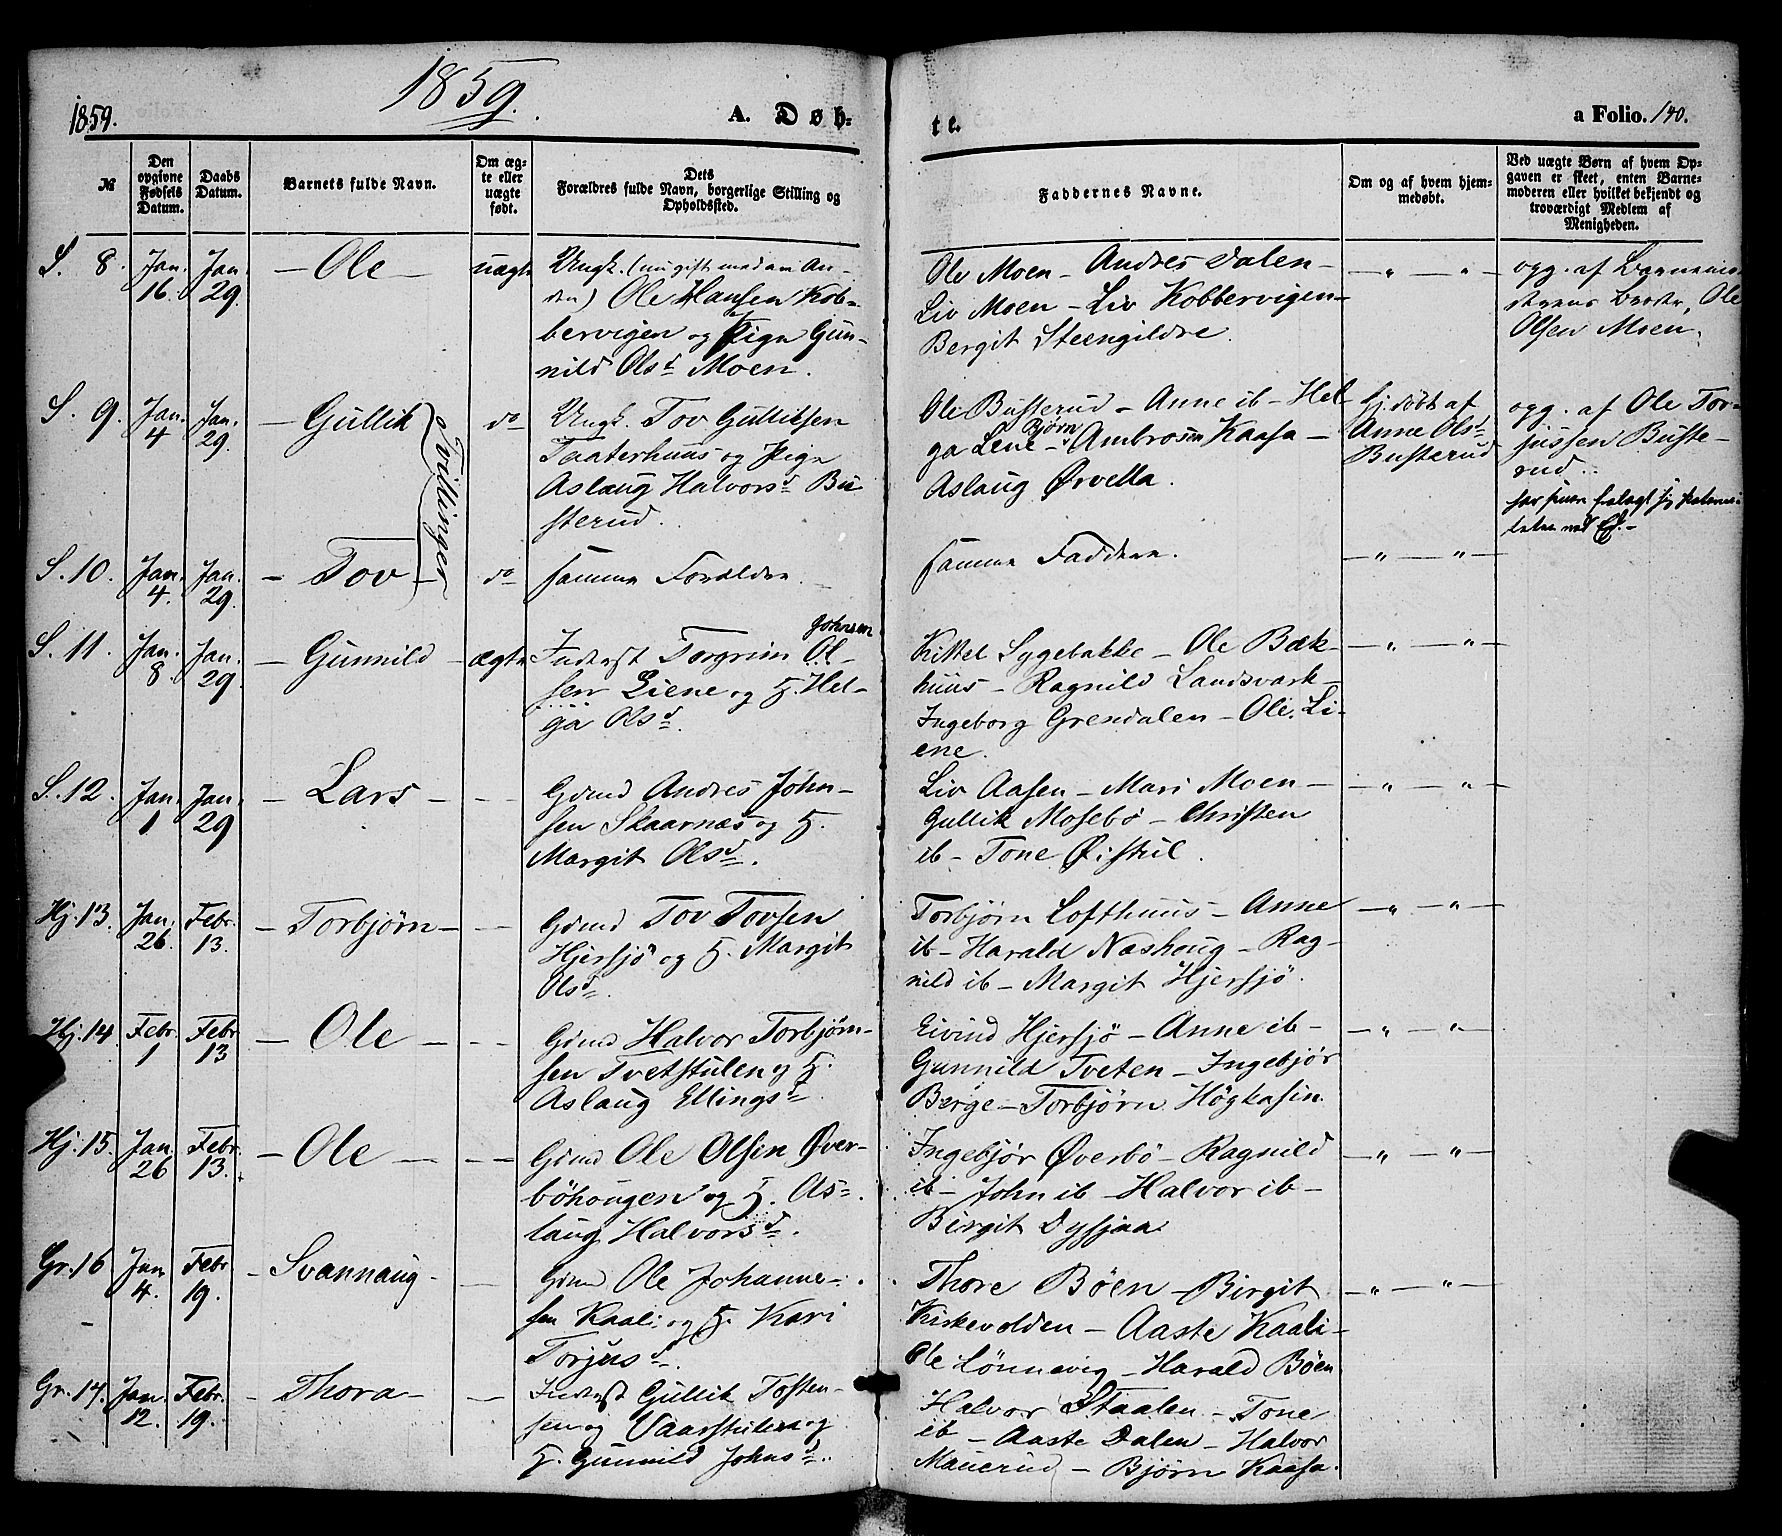 1859.
1859.
A. Døb-
te.
a Folio. 140.
№
Den opgivne Fødsels Datum.
Daabs Datum.
Barnets fulde Navn.
Om ægte eller uægte født.
Dets Forældres fulde Navn, borgerlige Stilling og Opholdssted.
Faddernes Navne.
Om og af hvem hjemmedøbt.
Ved uægte Børn af hvem Opgaven er skeet, enten Barnemoderen eller hvilket bekjendt og troværdigt Medlem af Menigheden.
S. 8. Jan. 16. Jan. 29. – Ole – uægte
Ungk. (nu gift med en An-
den) Ole Hansen Kob-
bervigen og Pige Gun-
nild Olsd. Moen.
Ole Moen – Andres Dalen –
Liv Moen – Liv Kobbervigen –
Bergit Steengildre.
– „ – „ –
opg. af Barnemo-
derens Broder, Ole
Olsen Moen.
S. 9. Jan. 4 Jan. 29. – Gullik do
Tvillinger
Ungk. Tov Gulliksen
Taaterhuus og Pige
Aslaug Halvorsd. Bu
sterud.
Ole Busterud – Anne ib – Hel
ga Lene – Bjørn Ambrosen Kaasa –
Aslaug Ørvella.
hj.døbt af
Anne Olsd.
Busterud
opg. af Ole Tor-
jussen Buste-
rud.
S. 10. Jan. 4. Jan. 29. – Tov – do
samme Forældre. –
samme Faddere.
– „ – „ –
S. 11. Jan. 8. Jan. 29. – Gunnild – ægte
Inderst Torgrim Ol- Johnsen
sen Liene og H. Hel-
ga Olsd.
Kittel Sygebakke – Ole Bæk-
huus – Ragnild Landsvark –
Ingeborg Grendalen – Ole Li-
ene.
– „ – „ –
S. 12. Jan. 1 Jan. 29 – Lars – –
Gdmd Andres John-
sen Skaarnæs og H.
Margit Olsd.
Liv Aasen – Mari Moen –
Gullik Mosebø – Christen
ib – Tone Øistul.
– „ – „ –
Hj. 13. Jan. 26. Febr. 13. – Torbjørn – –
Gdmd Tov Tovsen
Hjersjø og H. Margit
Olsd.
Torbjørn Lofthuus – Anne
ib – Harald Næshoug – Rag-
nild ib – Margit Hjersjø.
– „ – „ –
Hj. 14. Febr. 1 Febr 13 – Ole – –
Gdmd Halvor Torbjørn-
sen Tvetstulen og H.
Aslaug Ellingsd.
Eivind Hjersjø – Anne ib –
Gunnild Tveten – Ingebjør
Berge – Torbjørn Høgkasin
– „ – „ –
Hj. 15. Jan. 26 Febr. 13. – Ole – –
Gdmd Ole Olsen Øver-
bøhougen og H. As-
laug Halvorsd.
Ingebjør Øverbø – Ragnild
ib – John ib – Halvor ib –
Birgit Dysjaa
– „ – „ –
Gr. 16 Jan 4. Febr 19. – Svannaug – –
Gdmd Ole Johanne-
sen Kaali og H. Kari
Torjusd.
Thore Bøen – Birgit
Kirkevolden – Aaste Kaali –
Ole Lønnevig – Harald Bøen
– „ – „ –
Gr. 17. Jan. 12. Febr. 19. – Thora – –
Inderst Gullik Tosten-
sen Vaarstulen og
H. Gunnild Johnsd.
Halvor Staalen – Tone
ib – Aaste Dalen – Halvor
Mauerud – Bjørn Kaasa.